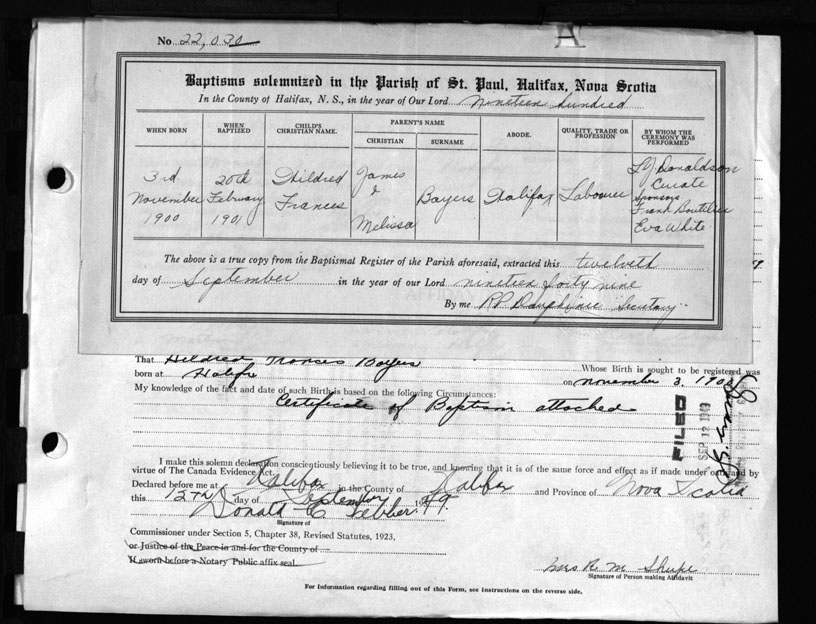 A
No 22,030
Baptisms solemnized in the Parish of St. Paul, Halifax, Nova Scotia
In the County of Halifax, N. S., in the year of Our Lord Nineteen hundred
WHEN BORN WHEN BAPTIZED CHILD'S CHRISTIAN NAME. PARENT'S NAME CHRISTIAN SURNAME ABODE. QUALITY, TRADE OR PROFESSION BY WHOM THE CEREMONY WAS PERFORMED
3rd November 1900 20th February 1901 Hildred Frances James & Melissa Bayers Halifax Labourer Donaldson Curate Sponsors Frank Boutilier Eva White
The above is a true copy from the Baptismal Register of the Parish aforesaid, extracted this twelveth
day of September in the year of our Lord nineteen forty nine
By me Dauphinee Secretary
That Hildred Frances Bayers Whose Birth is sought to be registered was
born at Halifax on November 3, 1900
My knowledge of the fact and date of such Birth is based on the following Circumstances:
Certificate of Baptism attached
FILED
SEP 12 1949
I make this solemn declaration conscientiously believing it to be true, and knowing that it is of the same force and effect as if made under oath and by
virtue of The Canada Evidence Act.
Declared before me at Halifax in the County of Halifax and Province of Nova Scotia
this 12th day of September 1949.
Donald C
Signature of
Commissioner under Section 5, Chapter 38, Revised Statutes, 1923,
or Justice of the Peace in and for the County of
If sworn before a Notary Public affix seal.
Mrs R. M. Shupe
Signature of Person making Affidavit
For Information regarding filling out of this Form, see Instructions on the reverse side.